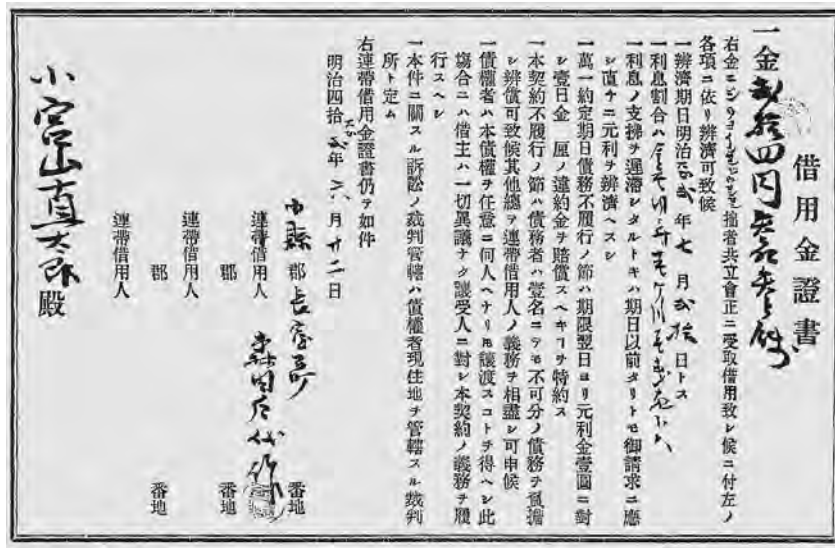 借用金證書
一金貳拾四円
右金ニシンヨイ 拙者共立會正ニ受取借用致シ候ニ付左ノ
各項ニ依リ辨濟可致候
一辨濟期日明治 貳年七月貳拾日トス
一利息割合ハ
一利息ノ支拂ヲ遲滯シタルトキハ期日以前タリトモ御請求ニ應
シ直チニ元利ヲ辨濟ヘスシ
一萬一約定期日債務不履行ノ節ハ期限翌日ヨリ元利金壹圓ニ對
シ壹日金 厘ノ違約金ヲ賠償スヘキヿヲ特約ス
一本契約不履行ノ節ハ債務者ハ壹名ニテモ不可分ノ債務ヲ負擔
シ辨償可致候其他總テ連帶借用人ノ義務ヲ相盡シ可申候
一債權者ハ本債權ヲ任意ニ何人ヘナリトモ讓渡スコトヲ得ヘシ此
塲合ニハ借主ハ一切異議ナク讓受人ニ對シ本契約ノ義務ヲ履
行スヘシ
一本件ニ關スル訴訟ノ裁判管轄ハ債權者現住地ヲ管轄スル裁判
所ト定ム
右連帶借用金證書仍テ如件
明治四拾 貳年六月廿二日
縣 郡 番地
連帶借用人 森田
郡 番地
連帶借用人
郡 番地
連帶借用人
小宮山直太郎殿